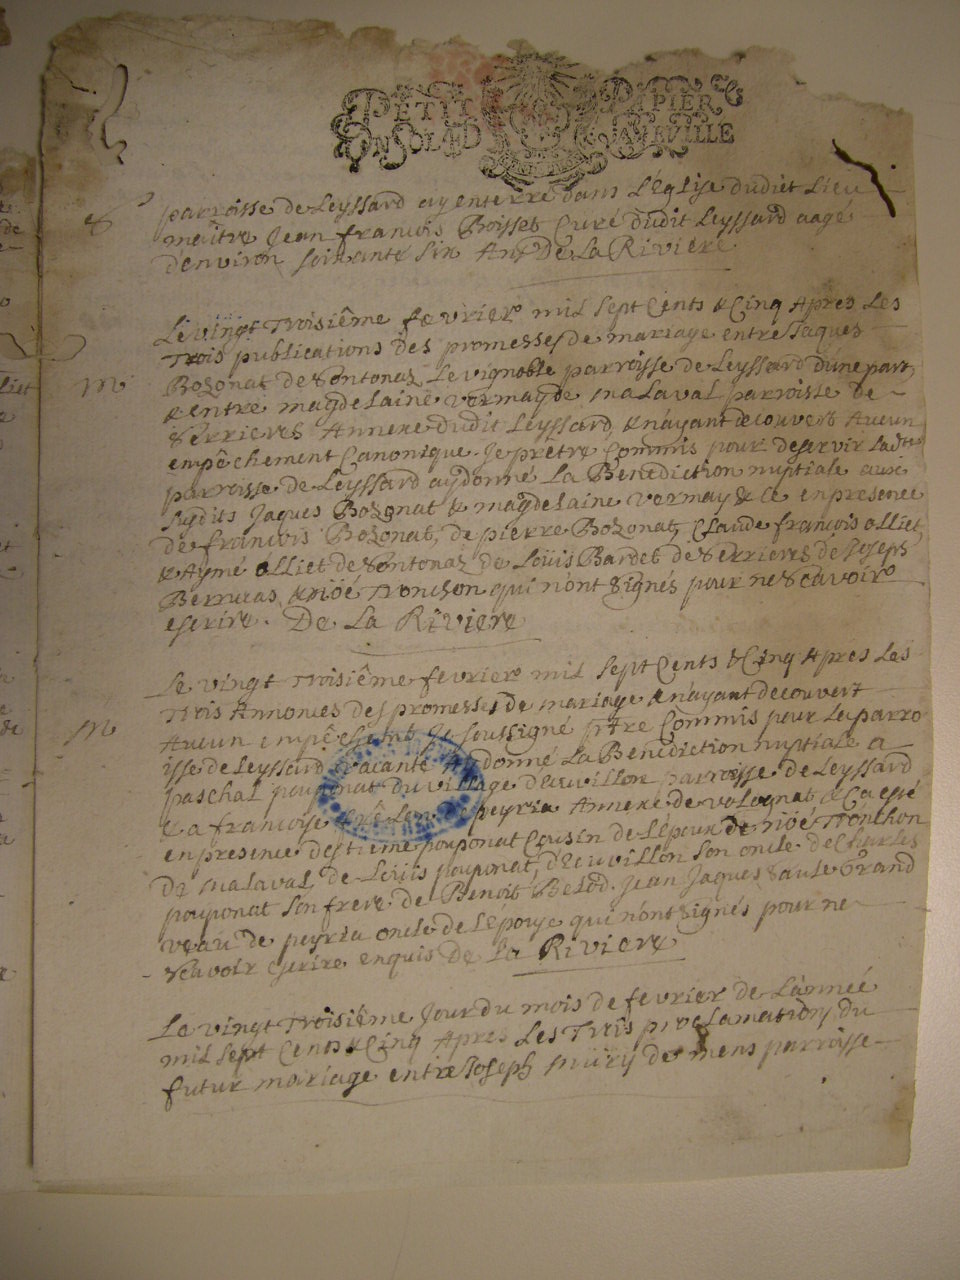 PETIT PAPIER
UN SOL 4 D LA FEVILLE
S parroisse de Leyssard ay enterré dans L'Eglise dudit Lieu
maitre Jean francois Boisset Curé dudit Leyssard aagé
d'environ soixante six Ans De La Riviere
Le vingt troisiême fevrier mil sept Cents & Cinq Apres Les
trois publications des promesses de mariage entre Jaques
M Bozonat de Sontonaz Le vignoble parroisse de Leyssard dune part
& entre magdelaine vermay de malaval parroisse de
Serrieres Annexe dudit Leyssard, & n'ayant decouvert Aucun
empêchement Canonique. Je prêtre Commis pour deservir ladte
parroisse de Leyssard ay donné La Benediction nuptiale aux
susdits Jaques Bozonat & magdelaine vermay & ce en presence
de francois Bozonat, de pierre Bozonat, Claude francois olliet
& Aymé olliet de Sontonaz de Loüis Bardet de Serrieres de Joseph
Berruras & noé Tronchon qui n'ont signés pour ne Scavoir
escrire. De La Riviere
Le vingt troisiême fevrier mil sept Cents & Cinq Apres Les
M trois Annonces des promesses de mariage & n'ayant decouvert
Aucun empêchement Je soussigné prtre Commis pour La parro
isse de Leyssard vacante Ay donné La Benediction nuptiale a
paschal pouponat du village d'euvillon parroisse de Leyssard
& a francoise peyria Annexe de volognat & Ca esté
en presence destienne pouponat Cousin de L'epoux de noé Tronchon
de malaval, de Loüis pouponat, d'Euvillon son oncle de Charles
pouponat son frere. de Benoit Belod. Jean Jaques Grand
veau de peyria oncle de L'epouse qui n'ont signés pour ne
scavoir escrire enquis De La Riviere
Le vingt troisiême Jour du mois de fevrier de L'année
mil sept Cents & Cinq Apres Les Trois proclamations du
futur mariage entre Joseph de mens parroisse